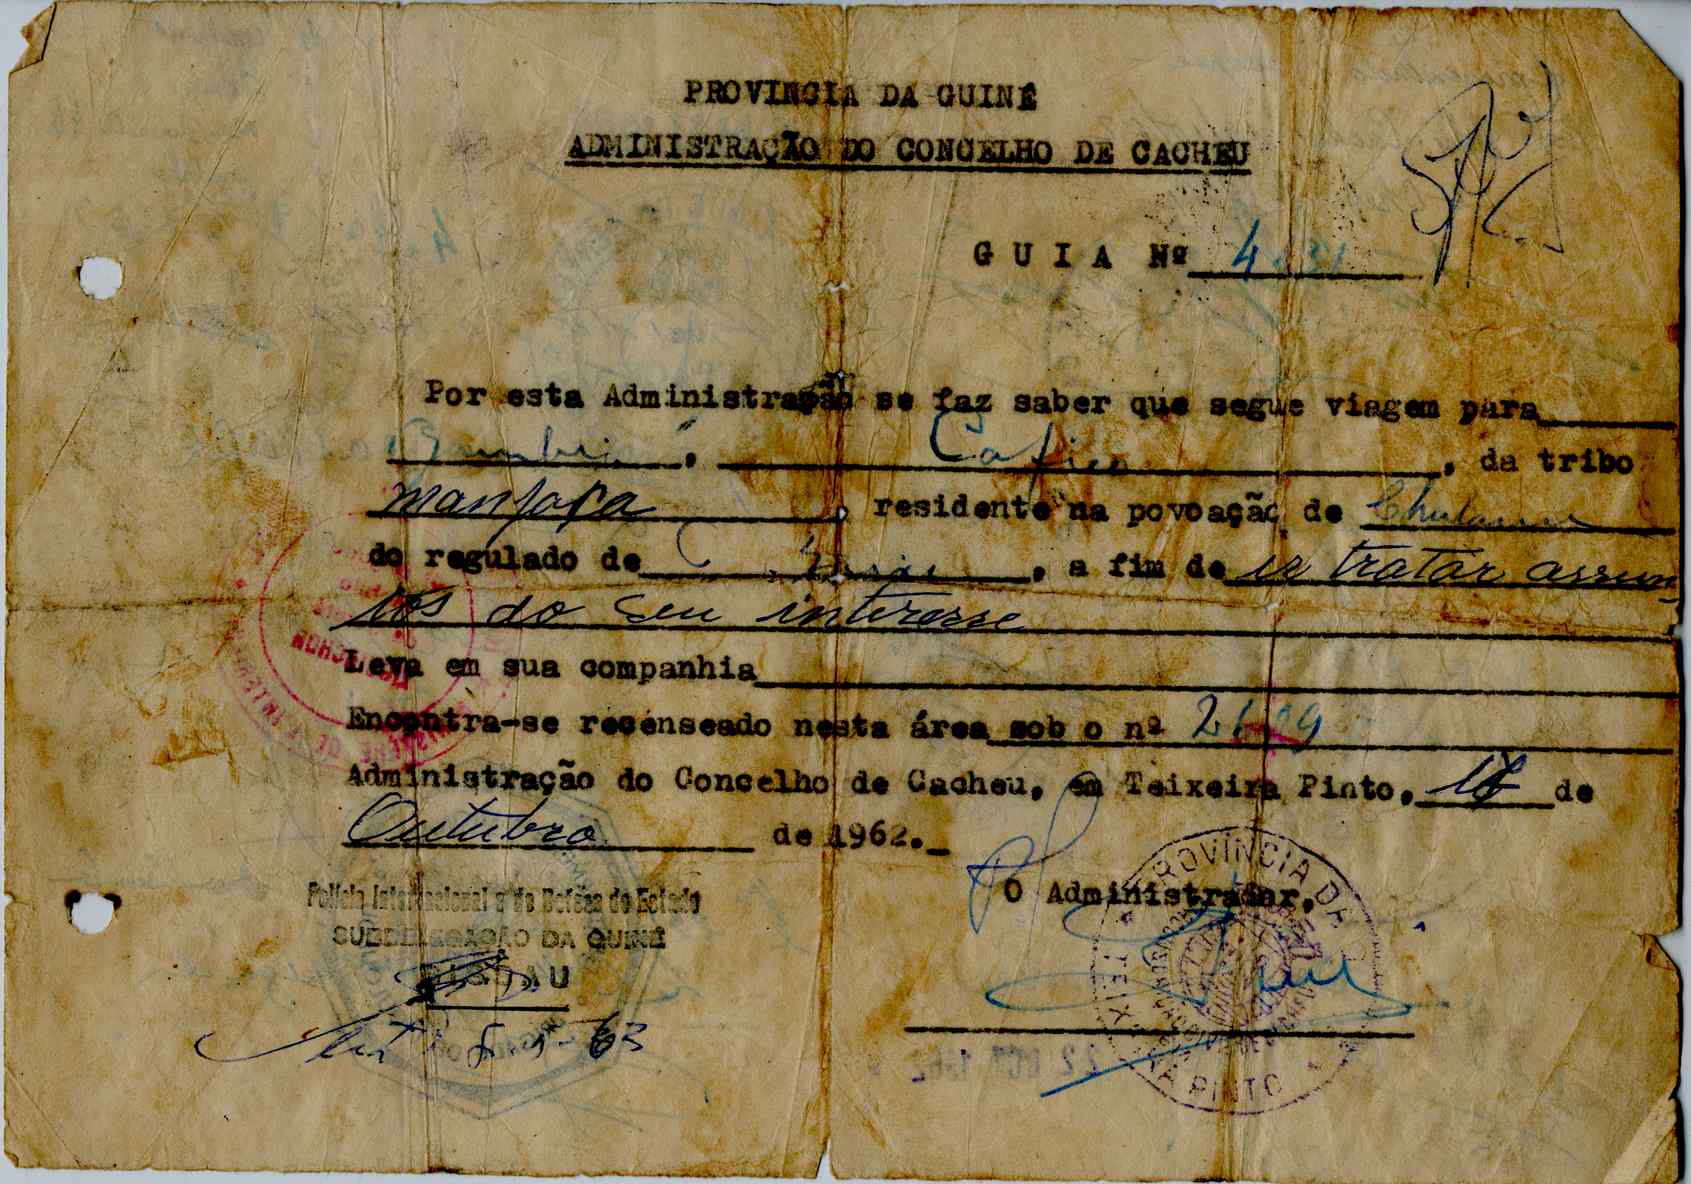 PROVINCIA DA GUINÉ
ADMINISTRAÇÃO DO CONCELHO DE CACHEU
GUIA Nº
Por esta Administração se faz saber que segue viagem para
, , da tribo
manjaca, residente na povoação de
do regulado de , a fim de ir tratar assun-
tos do seu interesse
Leva em sua companhia
Encontra-se recenseado nesta área sob o nº
Administração do Concelho de Cacheu, em Teixeira Pinto, 18 de
Outubro de 1962.
O Administrador,
Policia Internacional e de Defesa do Estado
SUBDELEGAÇÃO DA GUINÉ
BISSAU
63
PROVÍNCIA DA
TEIXEIRA PINTO